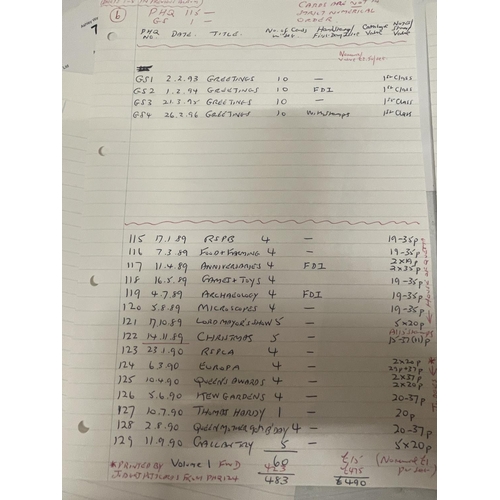 6 PHQ 115 — CARDS ARE NOT IN
GS 1 — NUMERICAL
ORDER.
PHQ NO. DATE. TITLE. No. of Cards in Set Handstamp/ First Day Issue Catalogue Value Notes/ Stamp Value
GS1 2.2.93 GREETINGS 10 — 1st Class
GS2 1.2.94 GREETINGS 10 FDI 1st Class
GS3 21.3.95 GREETINGS 10 — 1st Class
GS4 26.2.96 GREETINGS 10 With stamps 1st Class
115 17.1.89 RSPB 4 — 19-35p
116 7.3.89 FOOD & FARMING 4 — 19-35p
117 11.4.89 ANNIVERSARIES 4 FDI 2x19p 2x35p
118 16.5.89 GAMES & TOYS 4 — 19-35p
119 4.7.89 ARCHAEOLOGY 4 FDI 19-35p
120 5.9.89 MICROSCOPES 4 — 19-35p
121 17.10.89 LORD MAYOR'S SHOW 5 — 5x20p
122 14.11.89 CHRISTMAS 5 — 15-37(11)p
123 23.1.90 RSPCA 4 —
124 6.3.90 EUROPA 4 — 2x20p
125 10.4.90 QUEEN'S AWARDS 4 — 2x20p 2x37p
126 5.6.90 KEW GARDENS 4 — 20-37p
127 10.7.90 THOMAS HARDY 1 — 20p
128 2.8.90 QUEEN MOTHER 90th B'DAY 4 — 20-37p
129 11.9.90 GALLANTRY 5 — 5x20p
*PRINTED BY Volume 1 60 £15 (Nominal £1
FROM PHQ 124 423 £475
483 £490